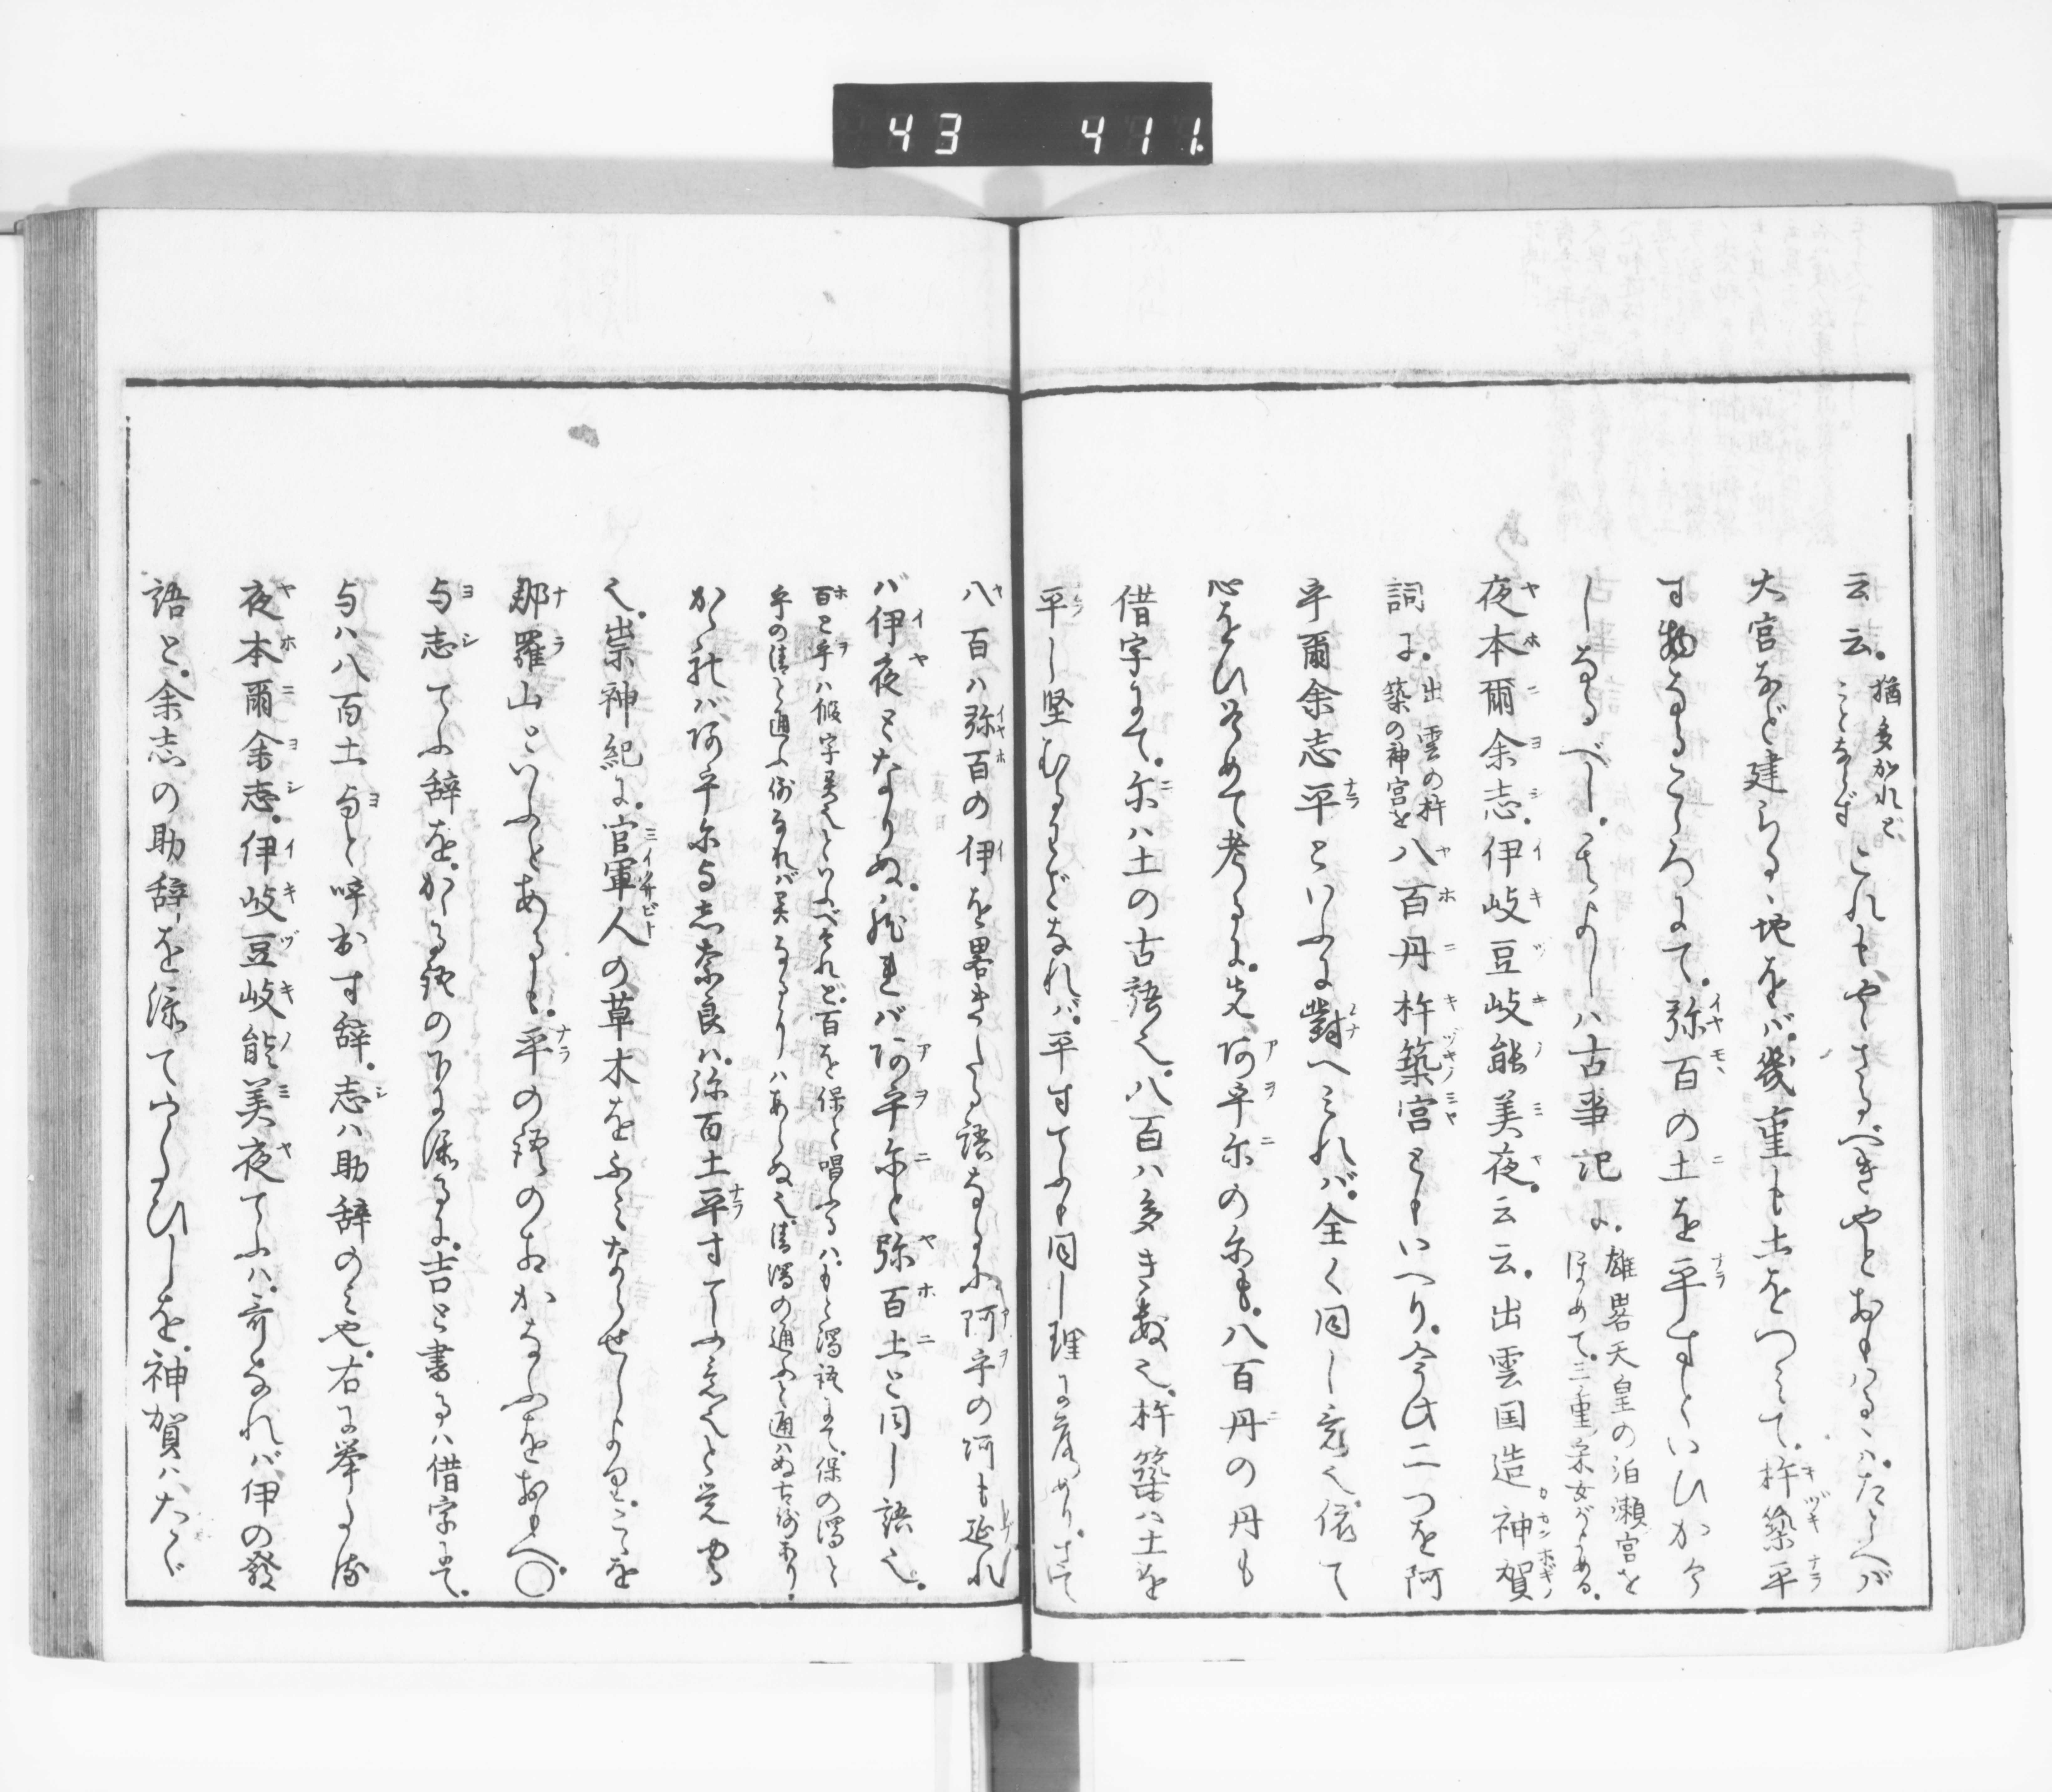 43 411
云云。猶多かれどことならず これもやゝさるべきやとおもはるゝハ、たとへバ
大宮など建らるゝ地をバ、幾重も土をつみて、杵築平
す物なるころにて、弥百の土を平すとハいひかけ
しなるべし、そのよしハ古事記に、雄畧天皇の泊瀬宮を
ほめて、三重采女がよめる、
夜本爾余志、伊岐豆岐能美夜、云云、出雲国造神賀
詞に、出雲の杵築の神宮を 八百丹杵築宮ともいへり、今此二つを阿
乎爾余志平といふに對へみれバ、全く同し意也、依て
心をひそめて考るに、先阿乎尓の尓も、八百丹の丹も
借字にて、尓ハ土の古語也、八百ハ多き数也、杵築ハ土を
平し堅むるわざなれバ、平すてふも同し理に落めり、さて
八百ハ弥百の伊を畧きたる語なるに、阿乎の阿も延れ
バ伊夜となりぬ、然れバ阿乎尓と弥百土と同し語也、
百と乎ハ仮字異也といふべけれど、百を保と唱ふるハ、もと濁語にて、保の濁と
乎の清と通ふ例なれバ異なるにハあらぬ也、清濁の通ふと通ハぬ古例あり、
かゝれバ阿乎尓与志奈良ハ、弥百土平すてふ意也と覚ゆる
也、崇神紀に、官軍人の草木をふみならせしより、こゝを
那羅山といふとあるも、平の語のおかなしふをおもへ、〇
与志てふ辞を、かゝる語の下に添るに、吉と書るハ借字にて、
与ハ八百土与と呼出す辞、志ハ助辞のみや、右に挙たる
夜本爾余志、伊岐豆岐能美夜てふハ、哥なれバ、伊の發
語と、余志の助辞を添てうたひしを、神賀ハたゞ